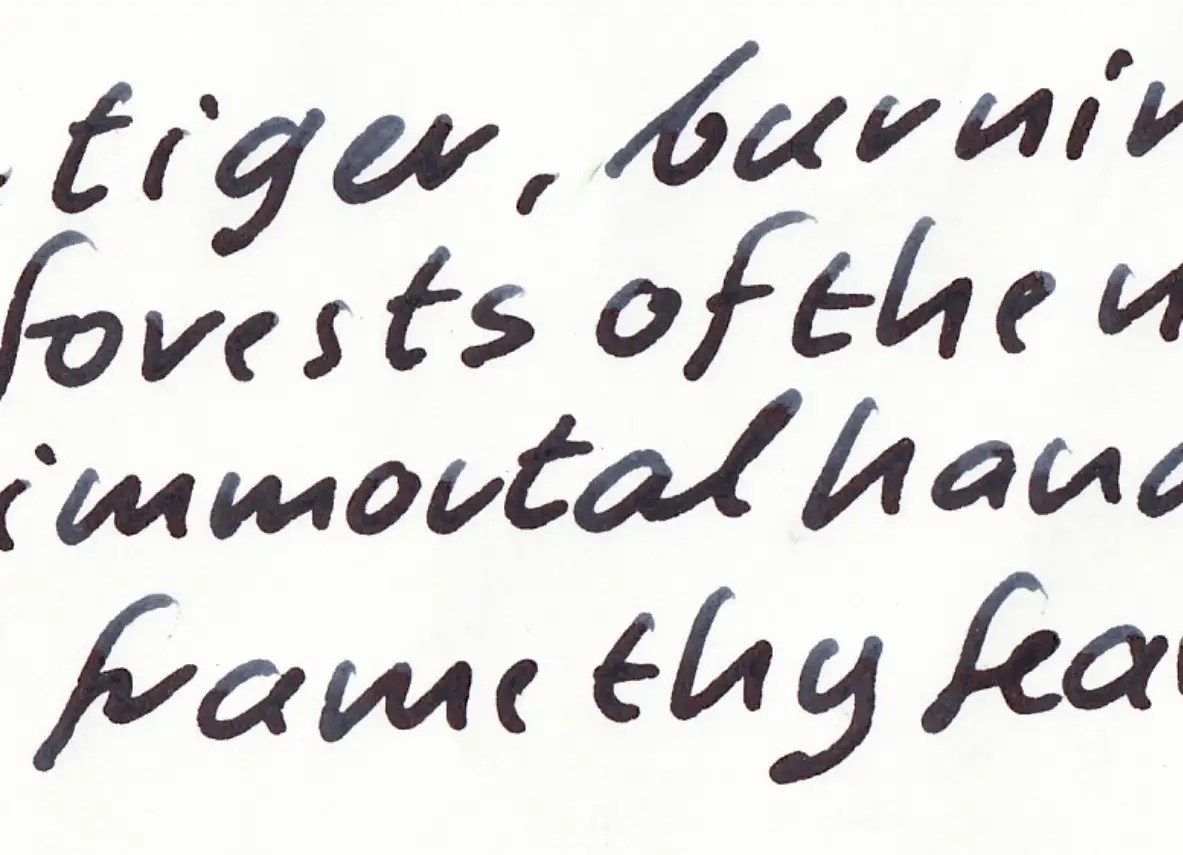 tiger, burnin
forests of the n
immortal hand
frame thy fear